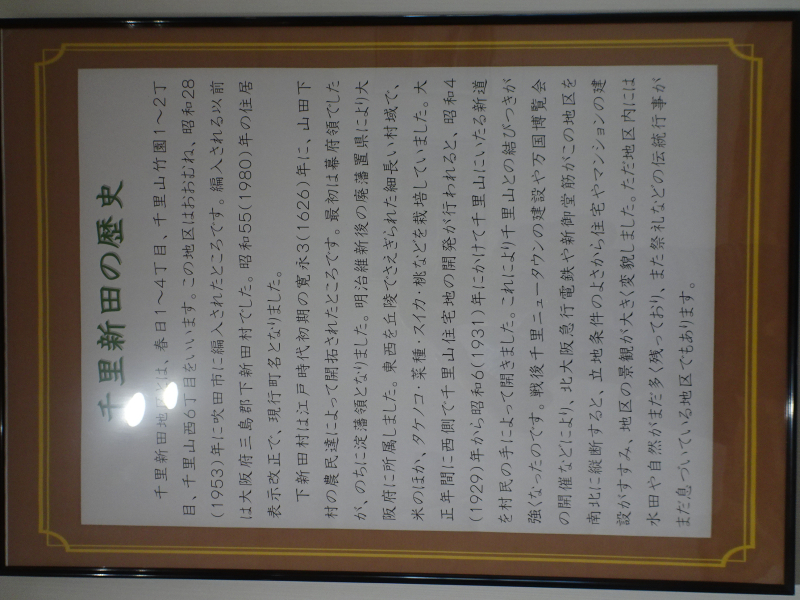 千里新田の歴史
千里新田地区とは、春日1〜4丁目、千里山竹園1〜2丁
目、千里山西6丁目をいいます。この地区はおおむね、昭和28
(1953)年に吹田市に編入されたところです。編入される以前
は大阪府三島郡下新田村でした。昭和55(1980)年の住居
表示改正で、現行町名となりました。
下新田村は江戸時代初期の寛永3(1626)年に、山田下
村の農民達によって開拓されたところです。最初は幕府領でした
が、のちに淀藩領となりました。明治維新後の廃藩置県により大
阪府に所属しました。東西を丘陵でさえぎられた細長い村域で、
米のほか、タケノコ・菜種・スイカ・桃などを栽培していました。大
正年間に西側で千里山住宅地の開発が行われると、昭和4
(1929)年から昭和6(1931)年にかけて千里山にいたる新道
を村民の手によって開きました。これにより千里山との結びつきが
強くなったのです。戦後千里ニュータウンの建設や万国博覧会
の開催などにより、北大阪急行電鉄や新御堂筋がこの地区を
南北に縦断すると、立地条件のよさから住宅やマンションの建
設がすすみ、地区の景観が大きく変貌しました。ただ地区内には
水田や自然がまだ多く残っており、また祭礼などの伝統行事が
まだ息づいている地区でもあります。